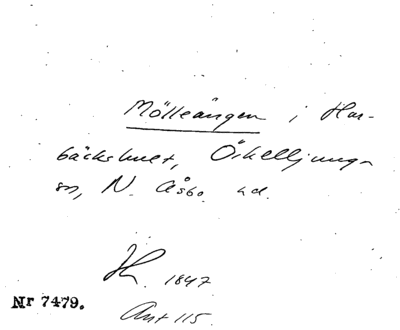 Mölleängen i Har-
bäckshult, Örkelljunga
sn, N. Åsbo hd.
1847
Nr 7479.
Ant 115